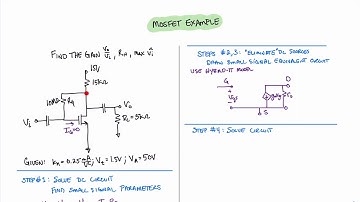 MOSFET EXAMPLE
FIND THE GAIN Vo/Vi, RIN, MAX Vi
15V
15KΩ
10MΩ
RG
Vo
Vi
IG=0
RL=5KΩ
GIVEN: Kn = 0.25 mA/V², Vt = 1.5V, VA = 50V
STEP #1: SOLVE DC CIRCUIT
FIND SMALL SIGNAL PARAMETERS
STEPS #2,3: "ELIMINATE" DC SOURCES
DRAW SMALL SIGNAL EQUIVALENT CIRCUIT
USE HYBRID-Π MODEL
G
D
+
Vgs
-
ro
S
STEP #4: SOLVE CIRCUIT